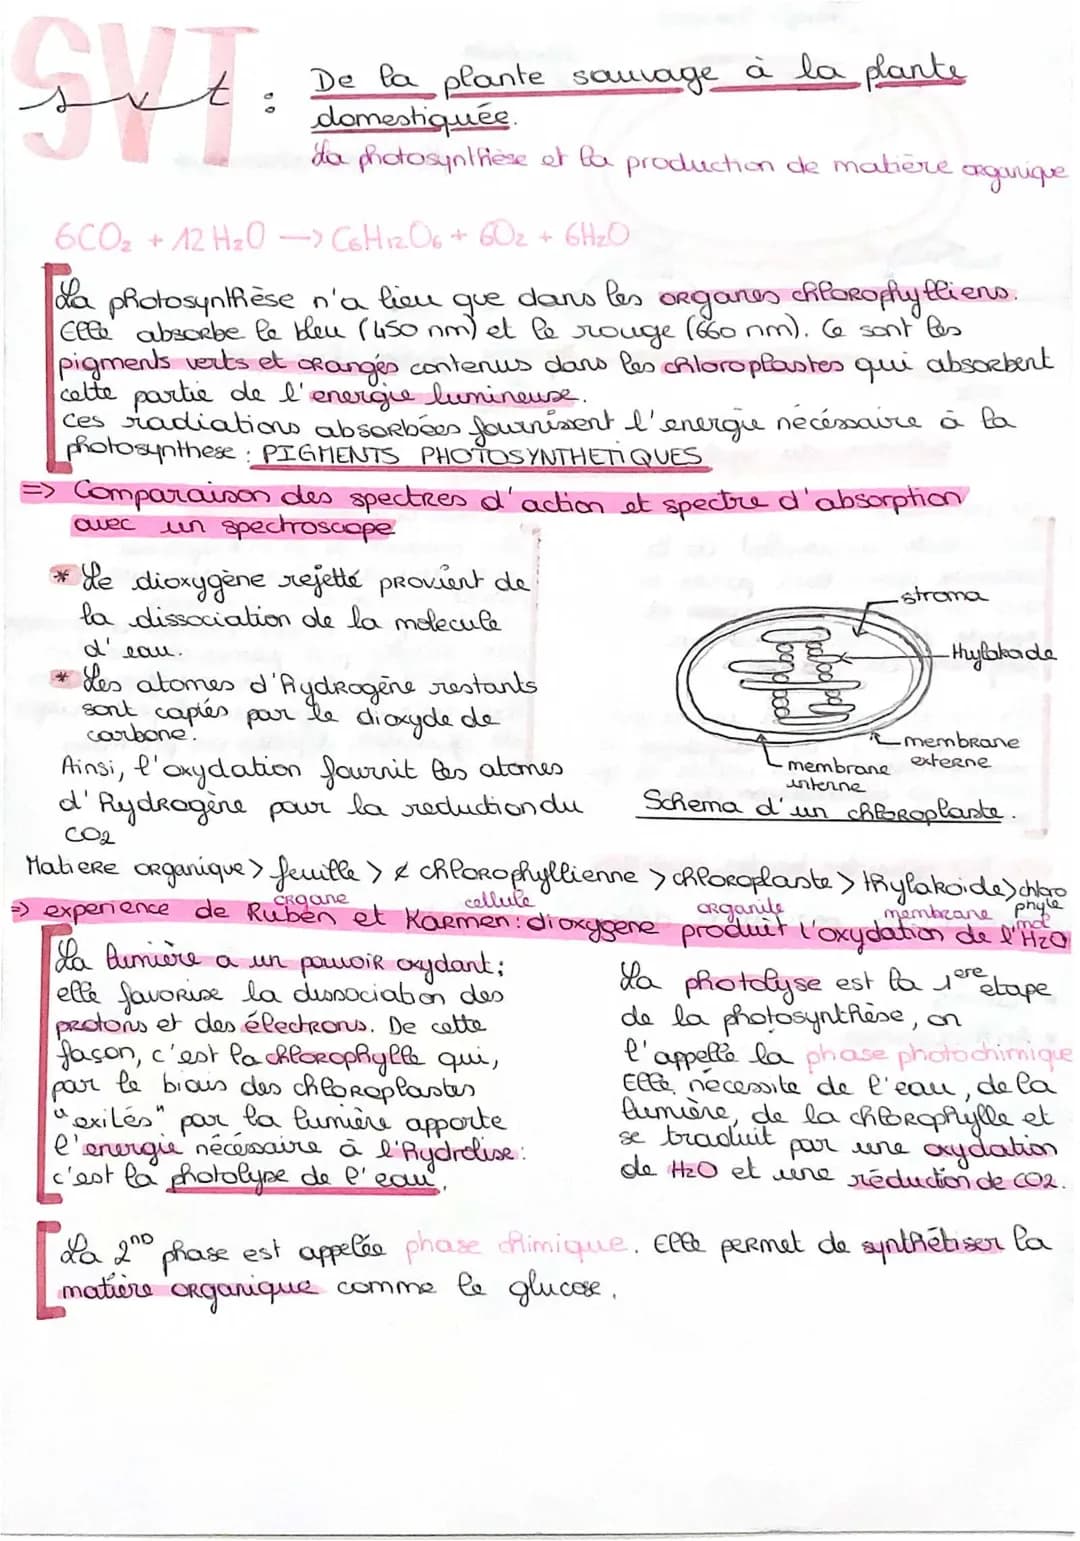 SVT
svt : De la plante sauvage à la plante
domestiquée.
La photosynthèse et la production de matière organique
6CO₂ + 12 H₂O —> C₆H₁₂O₆ + 6O₂ + 6H₂O
La photosynthèse n'a lieu que dans les organes chlorophylliens.
Elle absorbe le bleu (450 nm) et le rouge (660 nm). Ce sont les
pigments verts et orangés contenus dans les chloroplastes qui absorbent
cette partie de l'énergie lumineuse.
ces radiations absorbées fournissent l'énergie nécéssaire à la
photosynthese : PIGMENTS PHOTOSYNTHETIQUES
=> Comparaison des spectres d'action et spectre d'absorption
avec un spectroscope
* Le dioxygène rejetté provient de
la dissociation de la molecule
d'eau.
* Les atomes d'hydrogène restants
sont captés par le dioxyde de
carbone.
Ainsi, l'oxydation fournit les atomes
d'hydrogène pour la reduction du
CO₂
stroma
thylakoide
membrane
externe
membrane
interne
Schema d'un chloroplaste.
Matiere organique > feuille > ¢ chlorophyllienne > chloroplaste > thylakoide > chloro
phyle
organe cellule organite membrane mol
=> experience de Ruben et Karmen : dioxygene produit l'oxydation de l'H₂O
La lumière a un pouvoir oxydant ;
elle favorise la dissociation des
protons et des électrons. De cette
façon, c'est la chlorophylle qui,
par le biais des chloroplastes
"exilés" par la lumière apporte
l'énergie nécéssaire à l'hydrolise :
c'est la photolyse de l'eau.
La photolyse est la 1ere etape
de la photosynthèse, on
l'appelle la phase photochimique
Elle nécessite de l'eau, de la
lumière, de la chlorophylle et
se traduit par une oxydation
de H₂O et une réduction de CO₂.
La 2ND phase est appelée phase chimique. Elle permet de synthétiser la
matière organique comme le glucose.